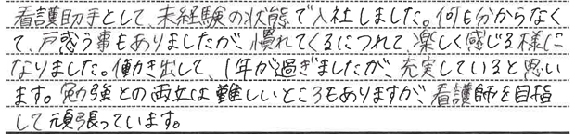 看護助手として、未経験の状態で入社しました。何も分からなく
て、戸惑う事もありましたが、慣れてくるにつれて、楽しく感じる様に
なりました。働き出して、1年が過ぎましたが、充実していると思い
ます。勉強との両立は難しいところもありますが、看護師を目指
して頑張っています。